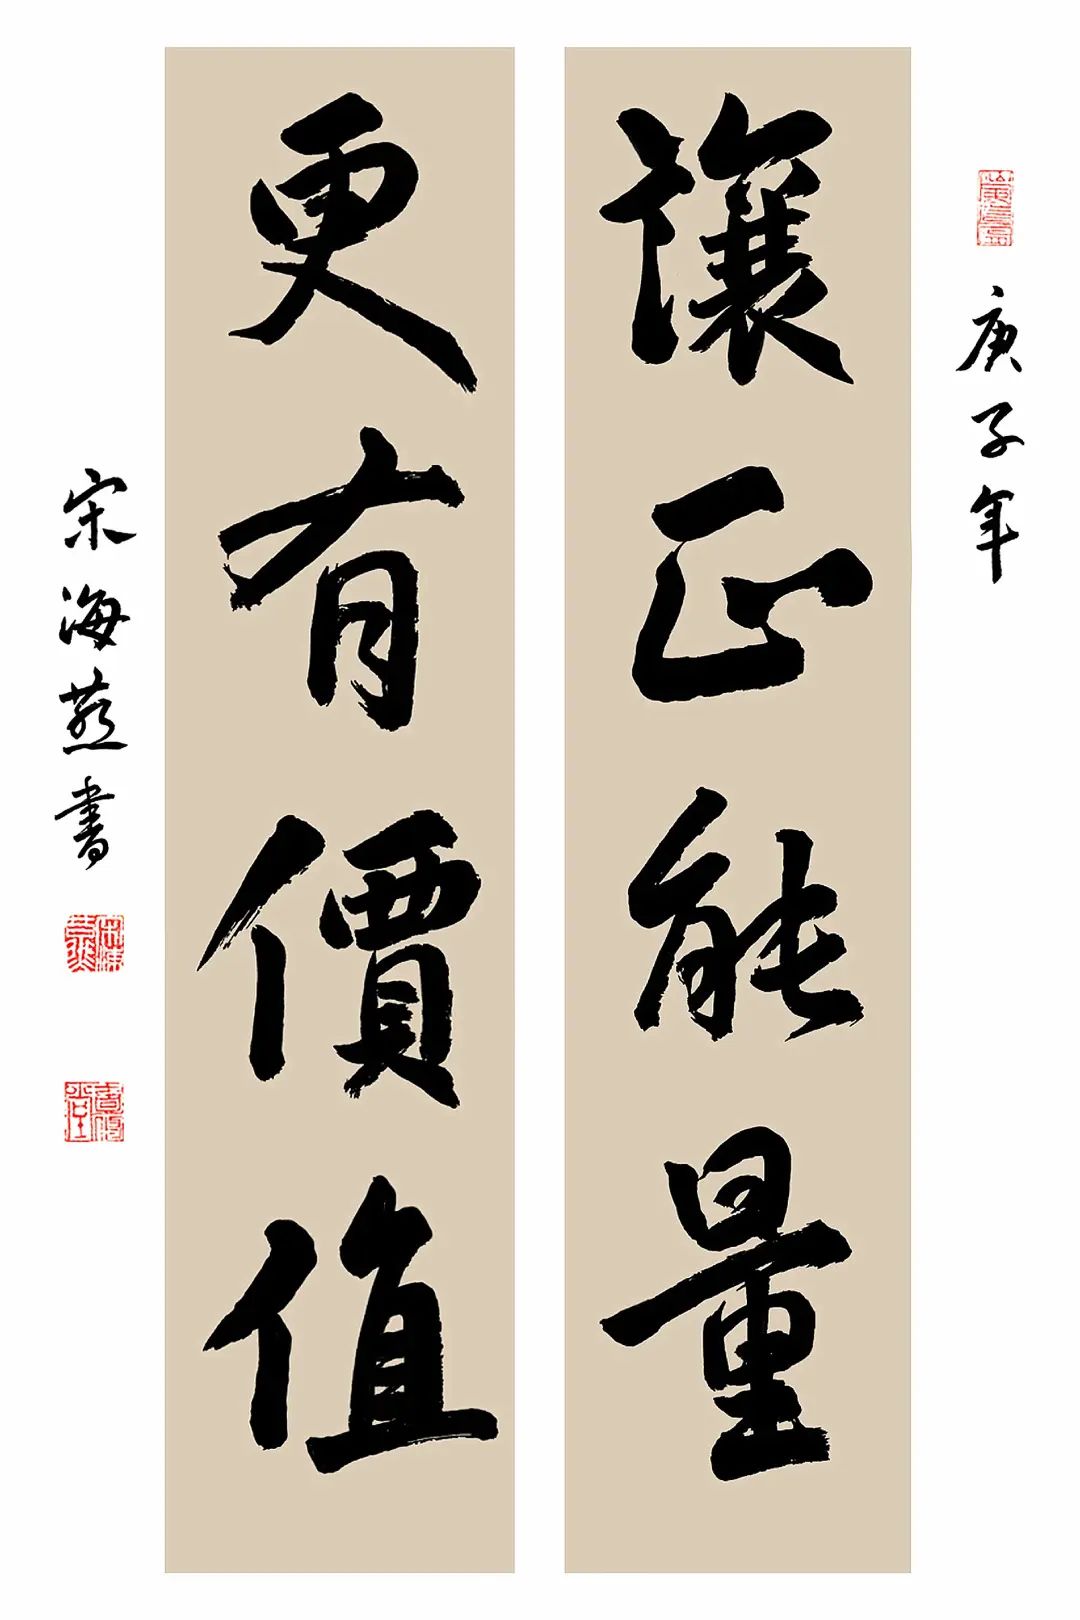 庚子年
讓正能量
更有價值
宋海燕書